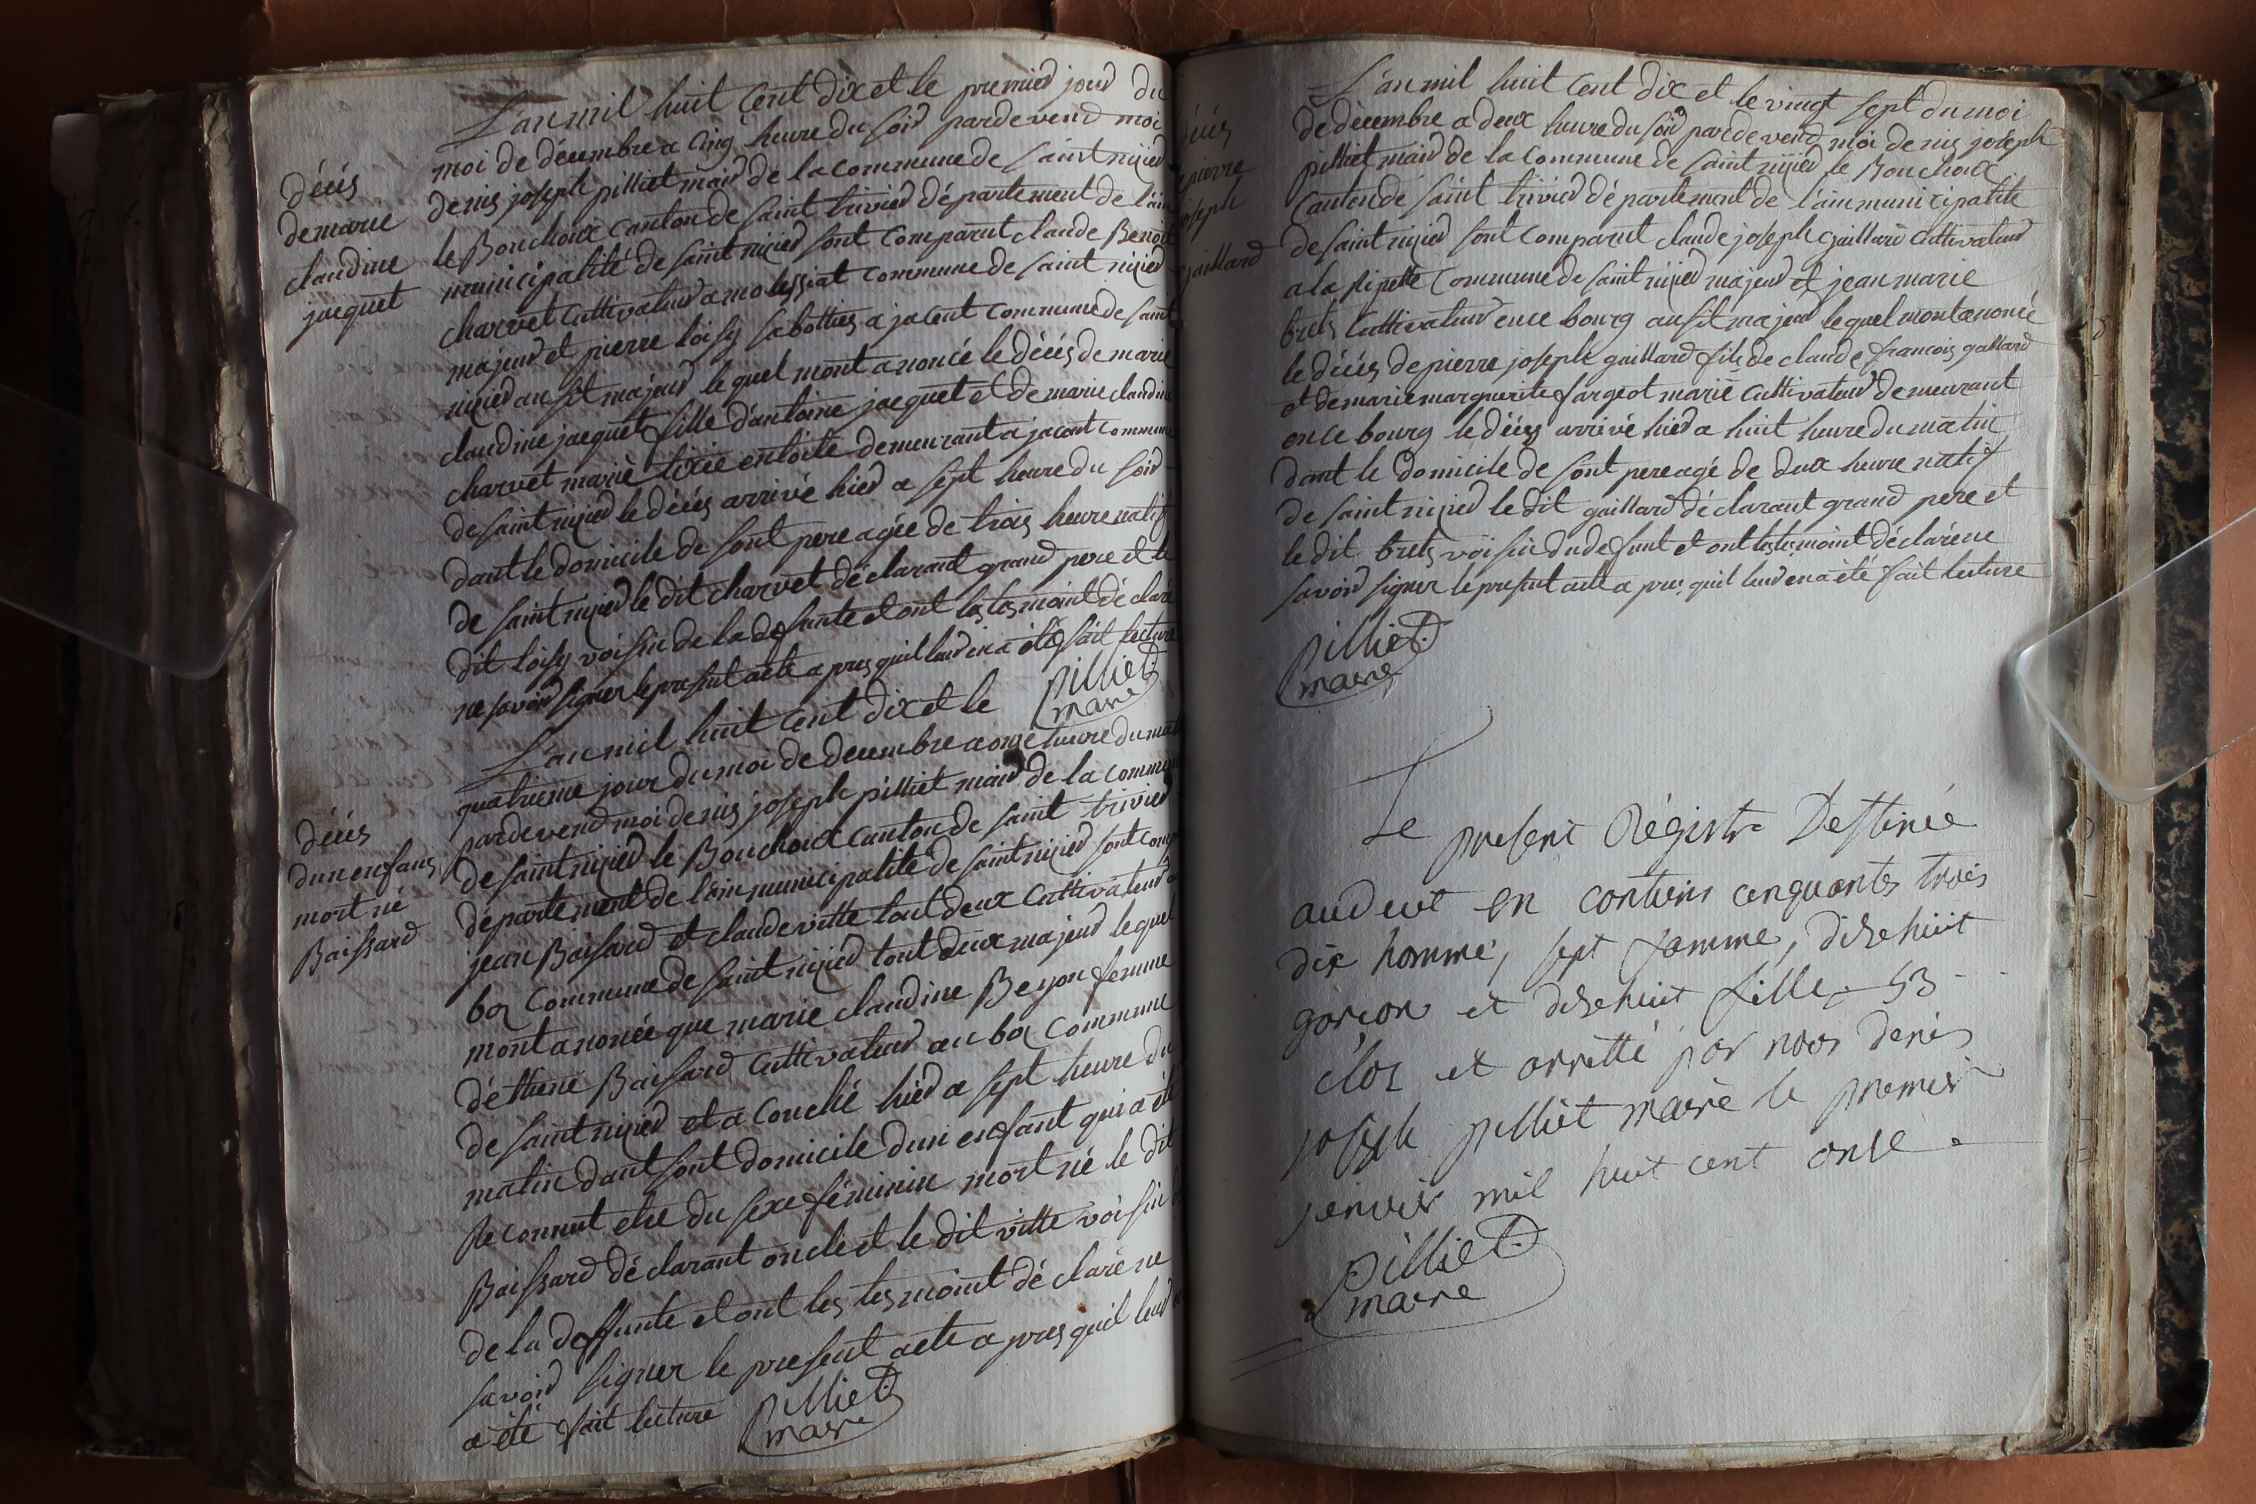 L'an mil huit Cent dix et le premier jour du
moi de décembre a cinq heure du soir pardevend moi
denis joseph pilliet mair de la commune de saint nizier
le Bouchoux canton de saint trivier département de l'ain
municipalité de saint nizier sont comparut claude Benoit
charvet cultivateur a molessiat commune de saint nizier
majeur et pierre loisy sabottier a jacent commune de saint
nizier ausit majeur lequel mont anoncé le décés de marie
claudine jacquet fille d'antoine jacquet et de marie claudine
charvet marié tixié entoile demeurant a jacent commune
de saint nizier le décés arrivé hier a sept heure du soir
dant le domicile de sont pere agée de trois heure natif
de saint nizier le dit charvet déclarant grand pere et le
dit loisy voisin de la defunte et ont les tesmoint déclaré
ne savoir signer le present acte a pres quil leur en a été fait lecture
pilliet
maire
décés
de marie
claudine
jacquet
L'an mil huit cent dix et le
quatrieme jour du moi de decembre a onze heure du matin
pardevend moi denis joseph pilliet mair de la commune
de saint nizier le Bouchoux canton de saint trivier
departement de l'ain municipalité de saint nizier sont comp
jean Baissard et claude vitte tout deux cultivateur au
boz commune de saint nizier tout deux majeur lequel
mont anoncée que marie claudine Beyon femme
déthiene Baisard cultivateur au boz commune
de saint nizier et a couché hier a sept heure du
matin dant sont domicile dun enfant qui a été
Reconnut etre du sexe féminin mort né le dit
Baissard déclarant oncle et le dit vitte voisin
de la deffunte et ont les tesmoint déclaré ne
savoir signer le present acte a pres quil leur
a été fait lecture
pilliet
maire
décés
dun enfans
mort né
Baissard
L'an mil huit Cent dix et le vingt sept du moi
de décembre a deux heure du soir pardevend moi denis joseph
pilliet mair de la commune de saint nizier le Bouchoux
canton de saint trivier département de l'ain municipalité
de saint nizier sont comparut claude joseph gaillard cultivateur
a la pipette commune de saint nizier majeur et jean marie
brets cultivateur en ce bourg ausit majeur lequel mont anoncé
le décés de pierre joseph gaillard fils de claude francois gallard
et de marie marguerite fargeot marié cultivateur demeurant
en ce bourg le décés arrivé hier a huit heure du matin
dant le domicile de sont pere agé de deux heure natif
de saint nizier le dit gaillard déclarant grand pere et
le dit brets voisin du defunt et ont les tesmoint déclaré ne
savoir signer le present acte a pres quil leur en a été fait lecture
pilliet
maire
décés
de pierre
joseph
gaillard
Le present Régistre Destinée
audecet en contient cinquantes trois
dix homme, sept famme, dixehuit
garcon et dixehuit fille - 53 - -
clos et arretté par nous denis
joseph pilliet maire le premier
jenvier mil huit cent onse -
pilliet
maire